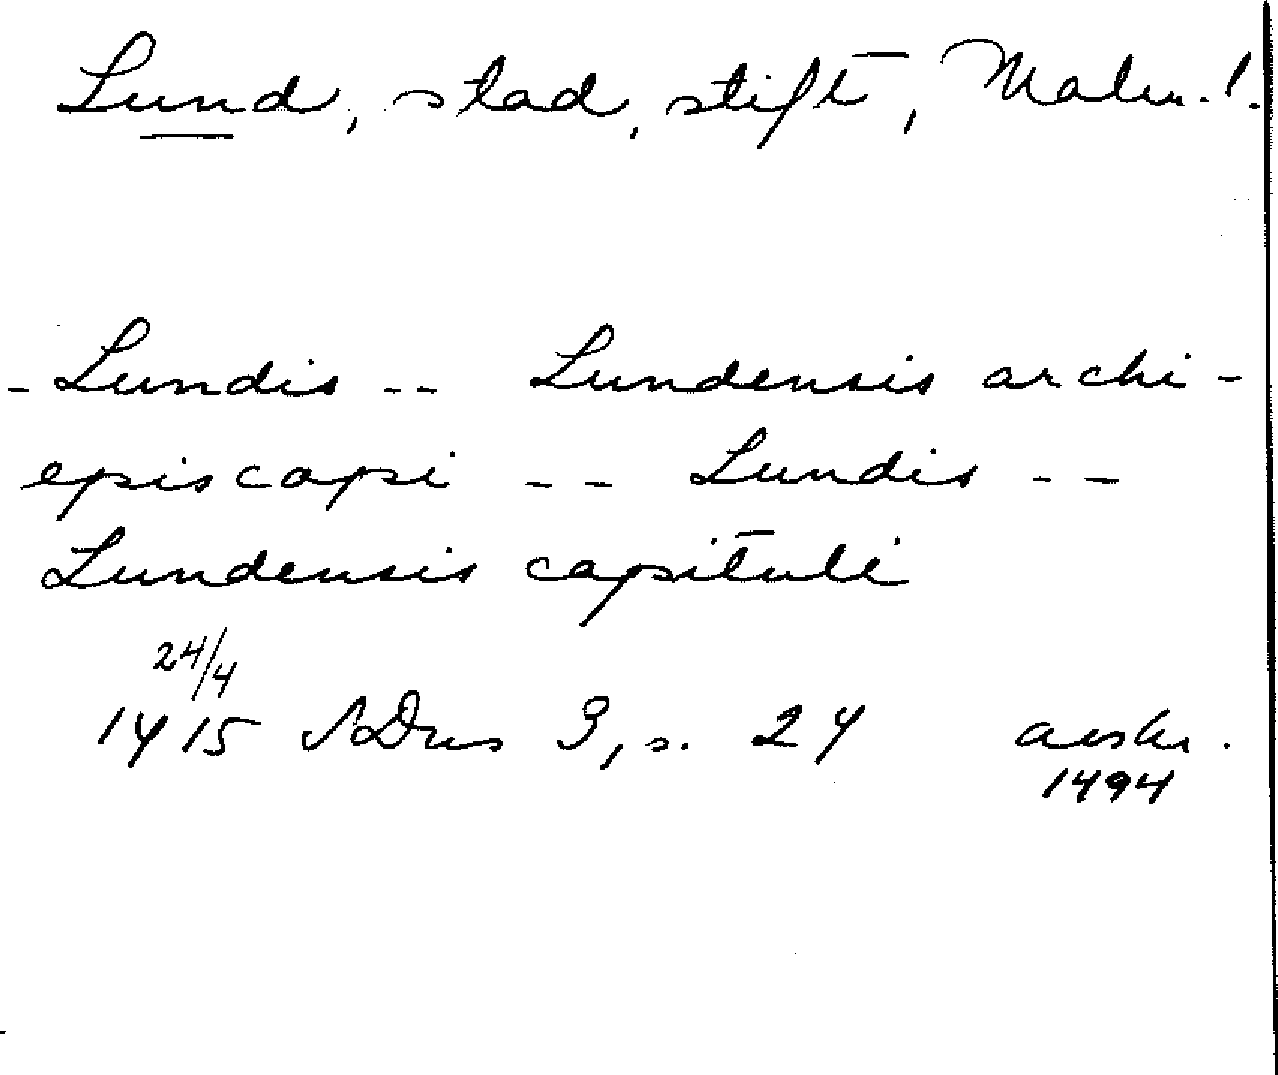 Lund, stad, stift, Malm. l.
- Lundis -- Lundensis archi-
episcopi -- Lundis --
Lundensis capituli
24/4
1415 SDns 3, s. 24 avskr.
1494